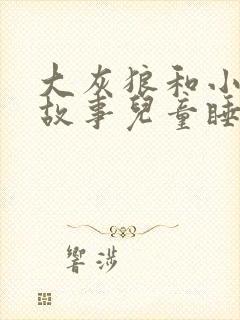 大灰狼和小
故事兒童睡
響涉